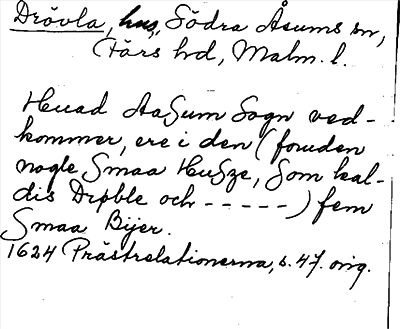 Drövla, hus, Södra Åsums sn,
(Färs hd, Malm. l.
Huad AaSum Sogn ved-
kommer, ere i den (foruden
nogle Smaa HuSze, Som kal-
dis Drøble och - - - - -) fem
Smaa Bijer.
1624 Prästrelationerna, s. 47. orig.